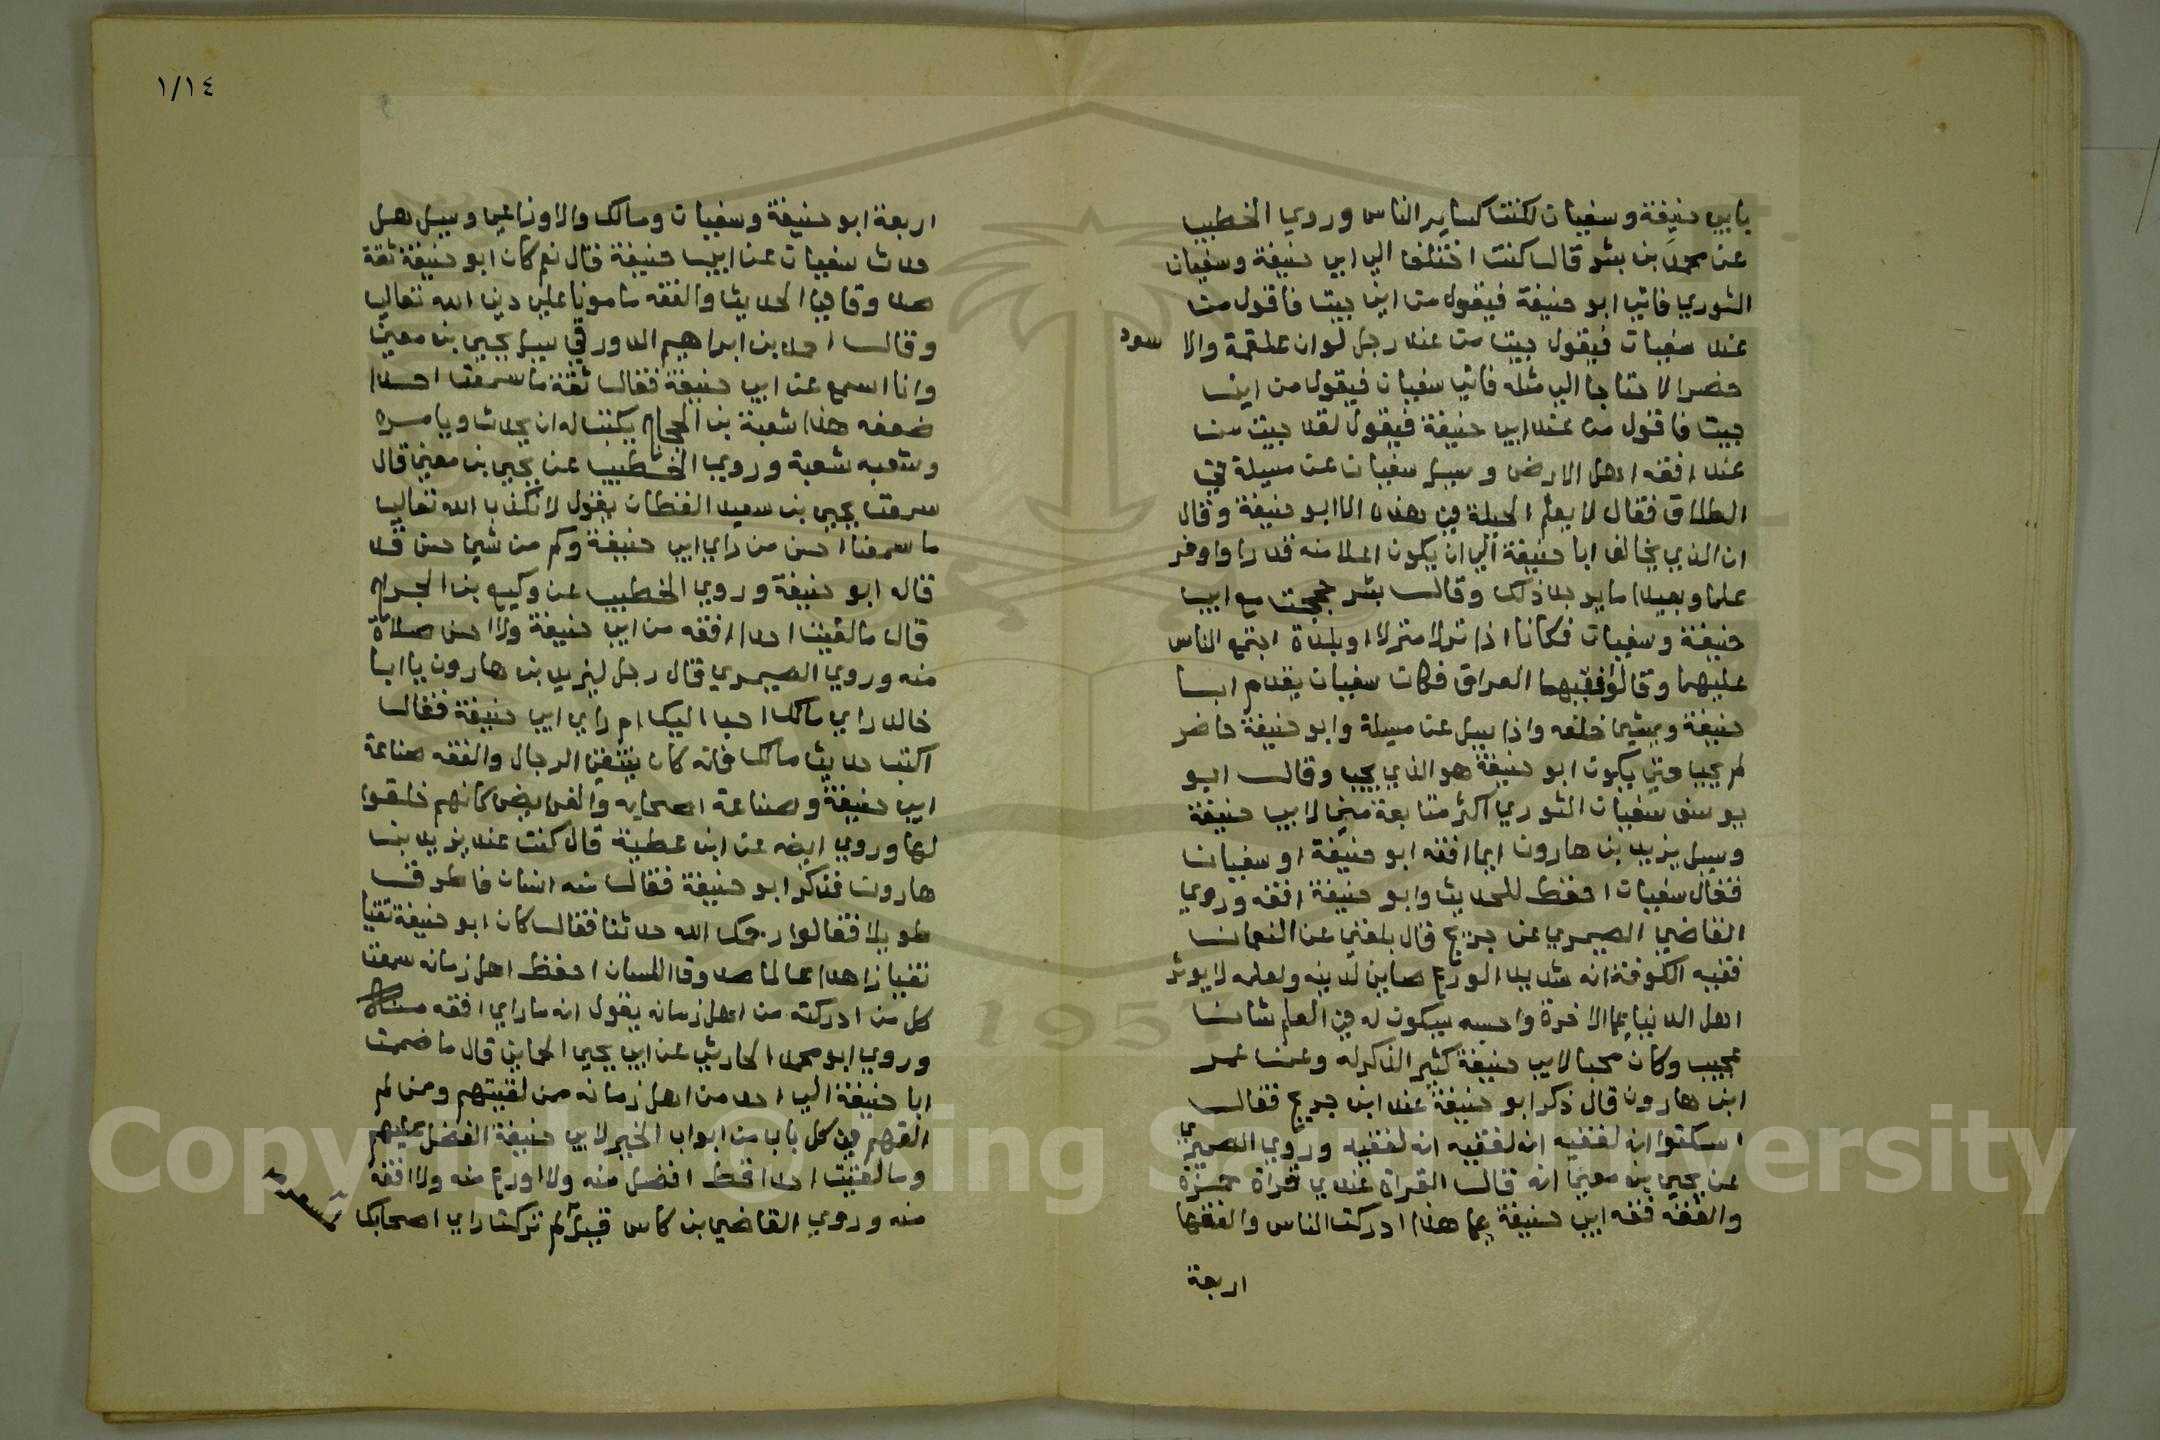 بابي حنيفة وسفيان لكنت كساير الناس وروي الخطيب
عن محمد بن بشر قال كنت اختلف الي ابي حنيفة وسفيان
الثوري فاتي ابو حنيفة فيقول من اين جيت فاقول من
عند سفيان فيقول جيت من عند رجل لو ان علقمة والا سود
حضرا لاحتاجا الي مثله فاتي سفيان فيقول من اين
جيت فاقول من عند ابي حنيفة فيقول لقد جيت من
عند افقه اهل الارض وسيل سفيان عن مسيلة في
الطلاق فقال لا يعلم الحيلة في هذه الا ابو حنيفة وقال
ان الذي يخالف ابا حنيفة الي ان يكون اعلا منه قدرا واوفر
علما وبعيدا ما يوجد ذلك وقال بشر حججت مع ابي
حنيفة وسفيان فكانا اذا نزلا منزلا او بلدة اجتمع الناس
عليهما وقالوا فقيهما العراق فكان سفيان يقدم ابا
حنيفة ويمشي خلفه واذا سيل عن مسيلة وابو حنيفة حاضر
لم يجب حتي يكون ابو حنيفة هو الذي يجيب وقال ابو
يوسف سفيان الثوري اكثر متابعة مني لابي حنيفة
وسيل يزيد بن هارون ايما افقه ابو حنيفة او سفيان
فقال سفيان احفظ للحديث وابو حنيفة افقه وروي
القاضي الصيمري عن جريج قال بلغني عن النعمان
فقيه الكوفة انه شديد الورع صاين لدينه ولعلمه لا يوثر
اهل الدنيا علي الاخرة واحسبه سيكون له في العلم شان
عجيب وكان محبا لابي حنيفة كثير الذكر له وعن عمر
ابن هارون قال ذكر ابو حنيفة عند ابن جريج فقال
اسكتوا انه لفقيه انه لفقيه انه لفقيه وروي الصيمري
عن يحيي بن معين انه قال القراة عندي قراة حمزة
والفقه فقه ابي حنيفة علي هذا ادركت الناس والفقها
اربعة
١/١٤
اربعة ابو حنيفة وسفيان ومالك والاوزاعي وسيل هل
حدث سفيان عن ابي حنيفة قال نعم كان ابو حنيفة ثقة
صدوقا في الحديث والفقه مامونا علي دين الله تعالي
وقال احمد بن ابراهيم الدورقي سيل يحيي بن معين
وانا اسمع عن ابي حنيفة فقال ثقة ما سمعت احدا
ضعفه هذا شعبة بن الحجاج يكتب له ان يحدث ويامره
وشعبه شعبة وروي الخطيب عن يحيي بن معين قال
سمعت يحيي بن سعيد القطان يقول لا نكذب الله تعالي
ما سمعنا احسن من راي ابي حنيفة وكم من شي حسن قد
قاله ابو حنيفة وروي الخطيب عن وكيع بن الجراح
قال ما لقيت احدا افقه من ابي حنيفة ولا احسن صلاة
منه وروي الصيمري قال رجل ليزيد بن هارون يا ابا
خالد راي مالك احب اليك ام راي ابي حنيفة فقال
اكتب حديث مالك فانه كان ينتقي الرجال والفقه صناعة
ابي حنيفة وصناعة اصحابه والفرايض كانهم خلقوا
لها وروي ايضه عن ابن عطية قال كنت عند يزيد بن
هارون فذكر ابو حنيفة فقال منه انسان فاطرق
طويلا فقالوا رحمك الله حدثنا فقال كان ابو حنيفة تقيا
نقيا زاهدا عالما صدوق اللسان احفظ اهل زمانه سمعت
كل من ادركته من اهل زمانه يقول انه ما راي افقه منه
وروي ابو محمد الحارثي عن ابي يحيي الحماني قال ما ضممت
ابا حنيفة الي احد من اهل زمانه ممن لقيتهم وممن لم
القهم في كل باب من ابواب الخير لابي حنيفة الفضل عليهم
وما لقيت احدا قط افضل منه ولا اورع منه ولا افقه
منه وروي القاضي بن كاس قيل لم تركت راي اصحابك
Copyright © King Saud University
1957